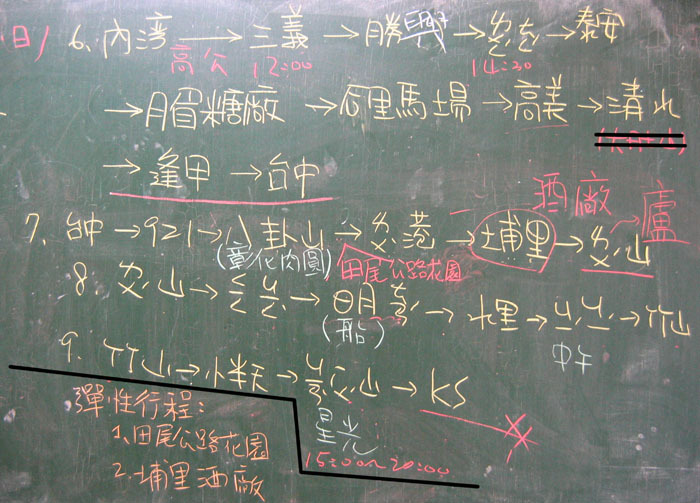 日) 6. 內灣→三義→勝興→ㄆㄤ→泰安
高公 12:00 14:30
→月眉糖廠→后里馬場→高美→清水
→逢甲→台中
酒廠 廬
7. 台中→921→八卦山→ㄆ巷→埔里→ㄆ山
(彰化肉圓) 田尾公路花園
8. ㄆ山→→日月→水里→ㄐㄐ→竹山
(船) 中午
9. 竹山→小半天→山→KS
彈性行程: 星光
1.田尾公路花園 15:00~20:00
2.埔里酒廠